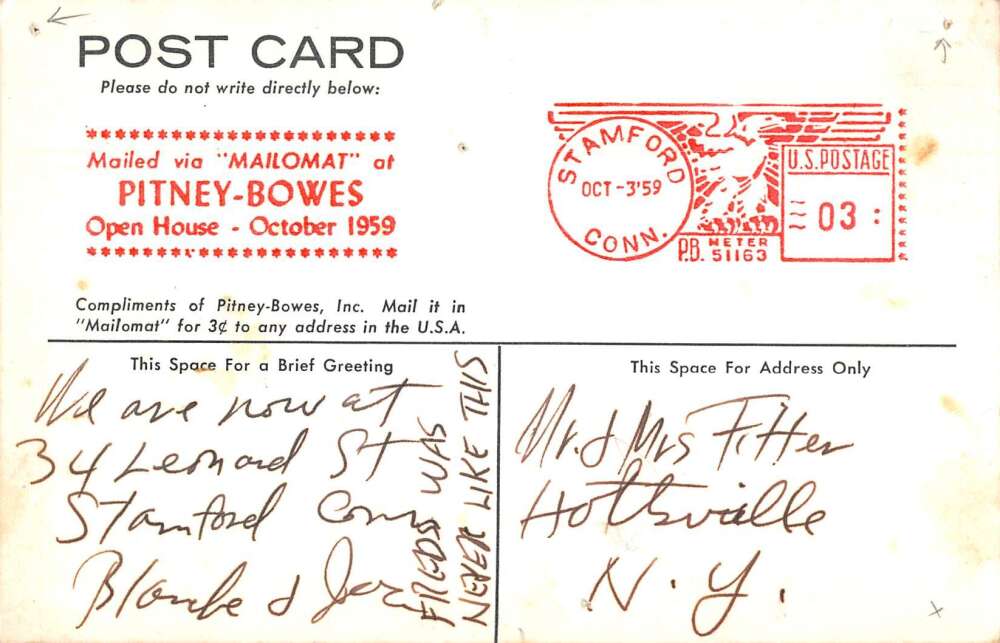 POST CARD
Please do not write directly below:
Mailed via "MAILOMAT" at
PITNEY-BOWES
Open House - October 1959
STAMFORD
OCT -3'59
CONN.
U.S. POSTAGE
03
P.B. METER
51163
Compliments of Pitney-Bowes, Inc. Mail it in
"Mailomat" for 3¢ to any address in the U.S.A.
This Space For a Brief Greeting
We are now at
34 Leonard St
Stamford Conn
Blanche &
WAS
NEVER LIKE THIS
This Space For Address Only
Mr. & Mrs Fitter
Holtsville
N.Y.